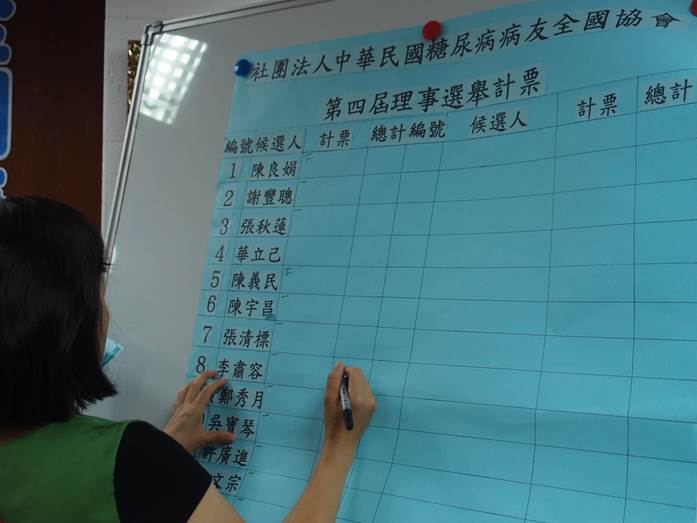 社團法人中華民國糖尿病病友全國協會
第四屆理事選舉計票
編號 候選人 計票 總計 編號 候選人 計票 總計
1 陳良娟
2 謝豐聰
3 張秋蓮
4 華立己
5 陳義民
6 陳宇昌
7 張清標
8 李肅容
鄭秀月
吳寶琴
許廣進
文宗